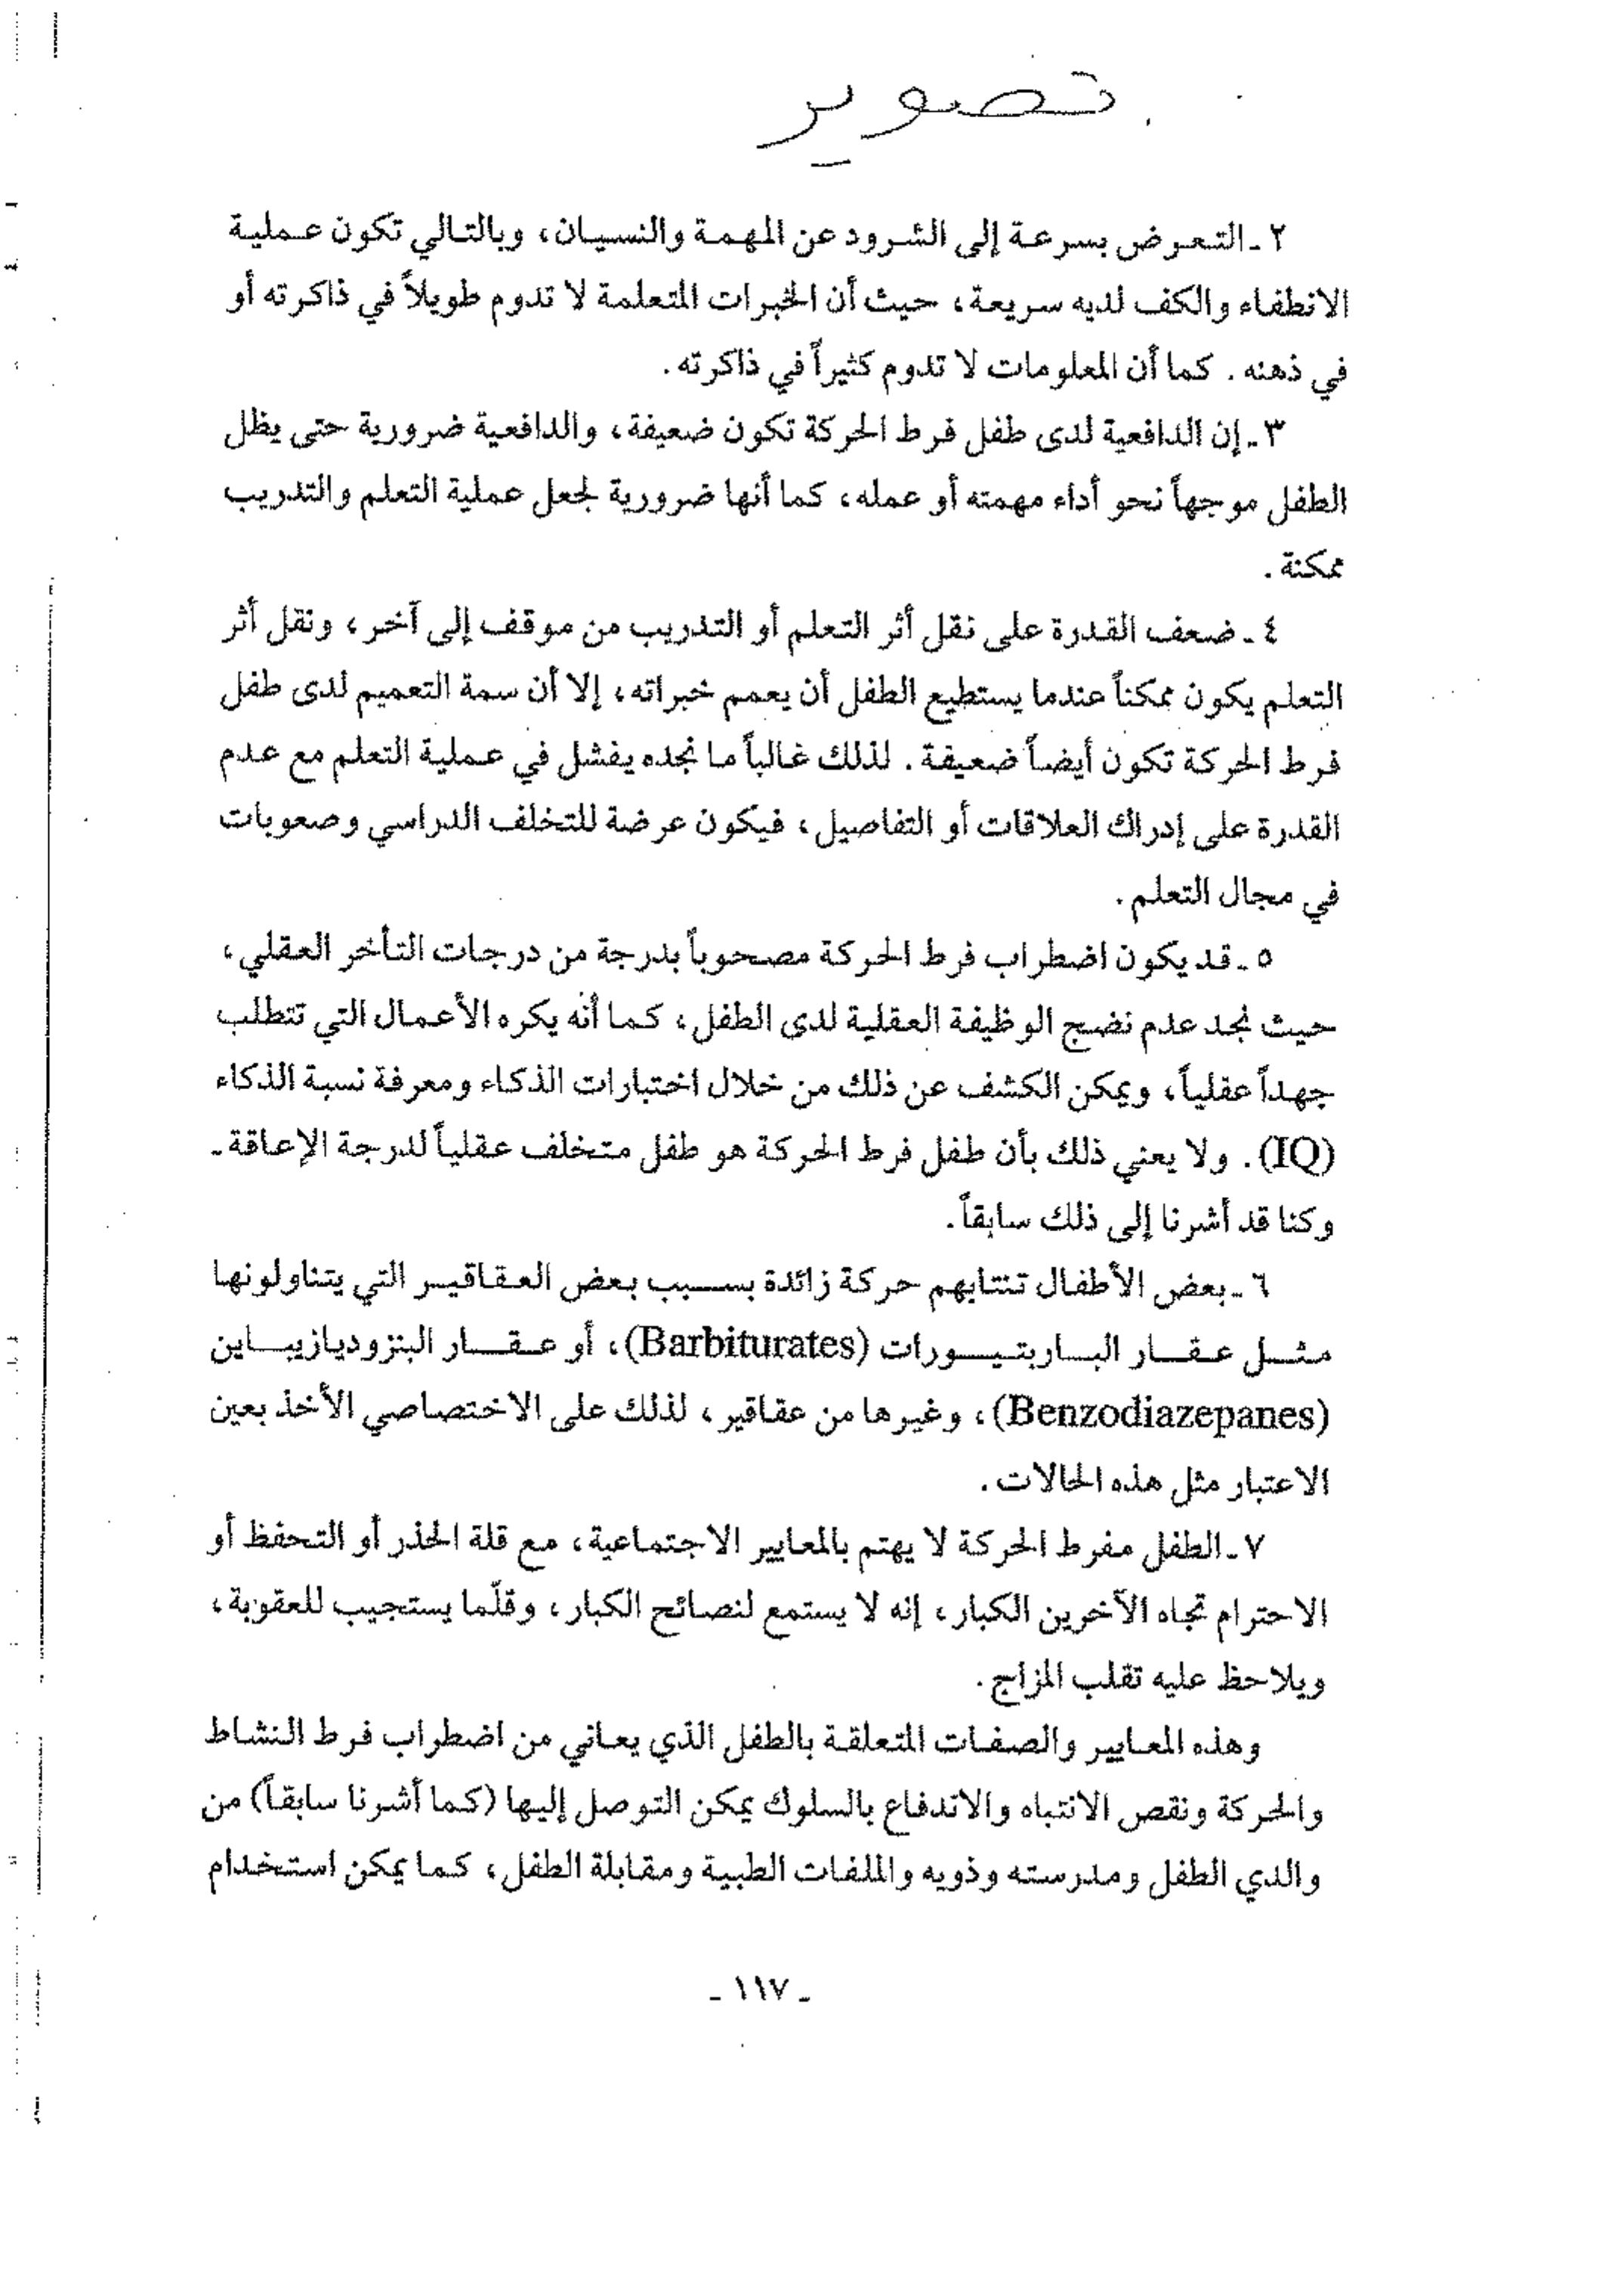 تصوير
٢ ـ التعرض بسرعة إلى الشرود عن المهمة والنسيان، وبالتالي تكون عملية
الانطفاء والكف لديه سريعة، حيث أن الخبرات المتعلمة لا تدوم طويلاً في ذاكرته أو
في ذهنه. كما أن المعلومات لا تدوم كثيراً في ذاكرته.
٣ ـ إن الدافعية لدى طفل فرط الحركة تكون ضعيفة، والدافعية ضرورية حتى يظل
الطفل موجهاً نحو أداء مهمته أو عمله، كما أنها ضرورية لجعل عملية التعلم والتدريب
ممكنة.
٤ ـ ضعف القدرة على نقل أثر التعلم أو التدريب من موقف إلى آخر، ونقل أثر
التعلم يكون ممكناً عندما يستطيع الطفل أن يعمم خبراته، إلا أن سمة التعميم لدى طفل
فرط الحركة تكون أيضاً ضعيفة. لذلك غالباً ما نجده يفشل في عملية التعلم مع عدم
القدرة على إدراك العلاقات أو التفاصيل، فيكون عرضة للتخلف الدراسي وصعوبات
في مجال التعلم.
٥ ـ قد يكون اضطراب فرط الحركة مصحوباً بدرجة من درجات التأخر العقلي،
حيث نجد عدم نضج الوظيفة العقلية لدى الطفل، كما أنه يكره الأعمال التي تتطلب
جهداً عقلياً، ويمكن الكشف عن ذلك من خلال اختبارات الذكاء ومعرفة نسبة الذكاء
(IQ). ولا يعني ذلك بأن طفل فرط الحركة هو طفل متخلف عقلياً لدرجة الإعاقة ـ
وكنا قد أشرنا إلى ذلك سابقاً.
٦ ـ بعض الأطفال تنتابهم حركة زائدة بسبب بعض العقاقير التي يتناولونها
مثل عقار الباربتيورات (Barbiturates)، أو عقار البنزوديازيباين
(Benzodiazepanes)، وغيرها من عقاقير، لذلك على الاختصاصي الأخذ بعين
الاعتبار مثل هذه الحالات.
٧ ـ الطفل مفرط الحركة لا يهتم بالمعايير الاجتماعية، مع قلة الحذر أو التحفظ أو
الاحترام تجاه الآخرين الكبار، إنه لا يستمع لنصائح الكبار، وقلّما يستجيب للعقوبة،
ويلاحظ عليه تقلب المزاج.
وهذه المعايير والصفات المتعلقة بالطفل الذي يعاني من اضطراب فرط النشاط
والحركة ونقص الانتباه والاندفاع بالسلوك يمكن التوصل إليها (كما أشرنا سابقاً) من
والدي الطفل ومدرسته وذويه والملفات الطبية ومقابلة الطفل، كما يمكن استخدام
ـ ١١٧ ـ